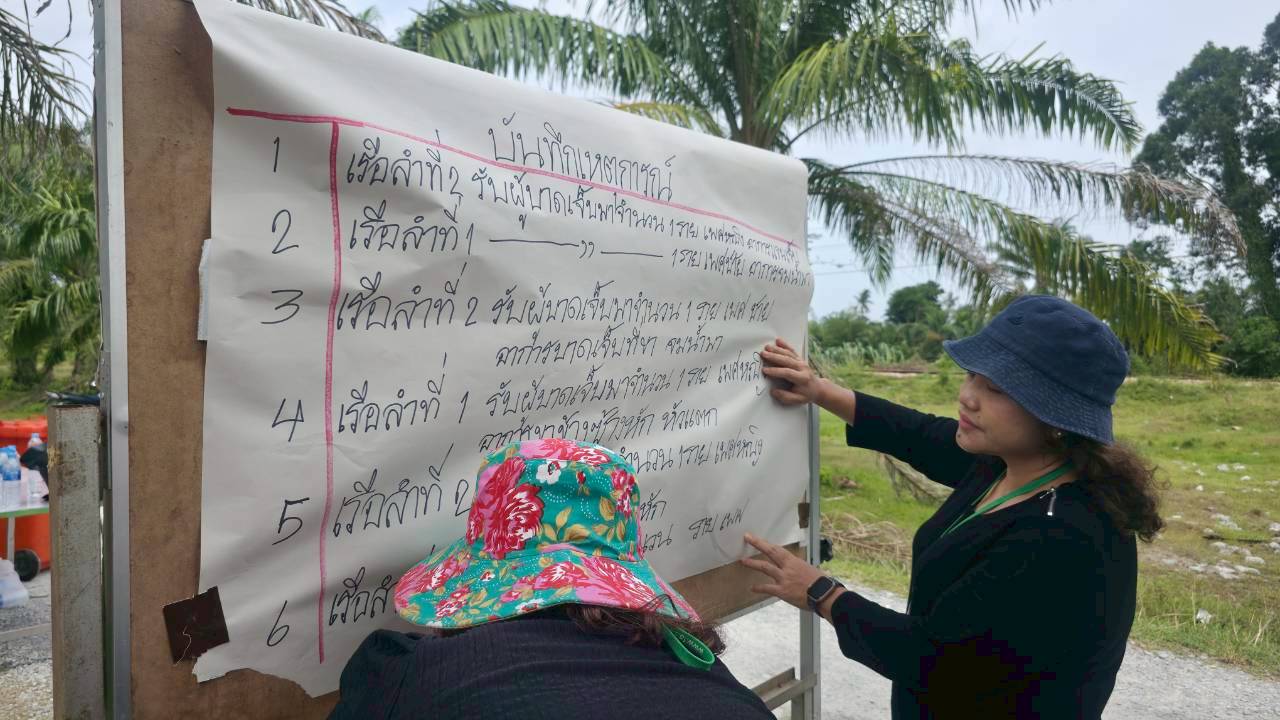 บันทึกเหตุการณ์
1 เรือลำที่ 2 รับผู้บาดเจ็บมาจำนวน 1 ราย เพศหญิง
2 เรือลำที่ 1 ——— ,, ——— 1 ราย เพศชาย อาการจมน้ำ
3 เรือลำที่ 2 รับผู้บาดเจ็บมาจำนวน 1 ราย เพศ ชาย
อาการบาดเจ็บที่ขา จมน้ำมา
4 เรือลำที่ 1 รับผู้บาดเจ็บมาจำนวน 1 ราย เพศหญิง
อาการขาข้างขวาหัก หัวแตก
5 เรือลำที่ 2 จำนวน 1 ราย เพศหญิง
หัก
6 เรือลำ นวน ราย เพศ